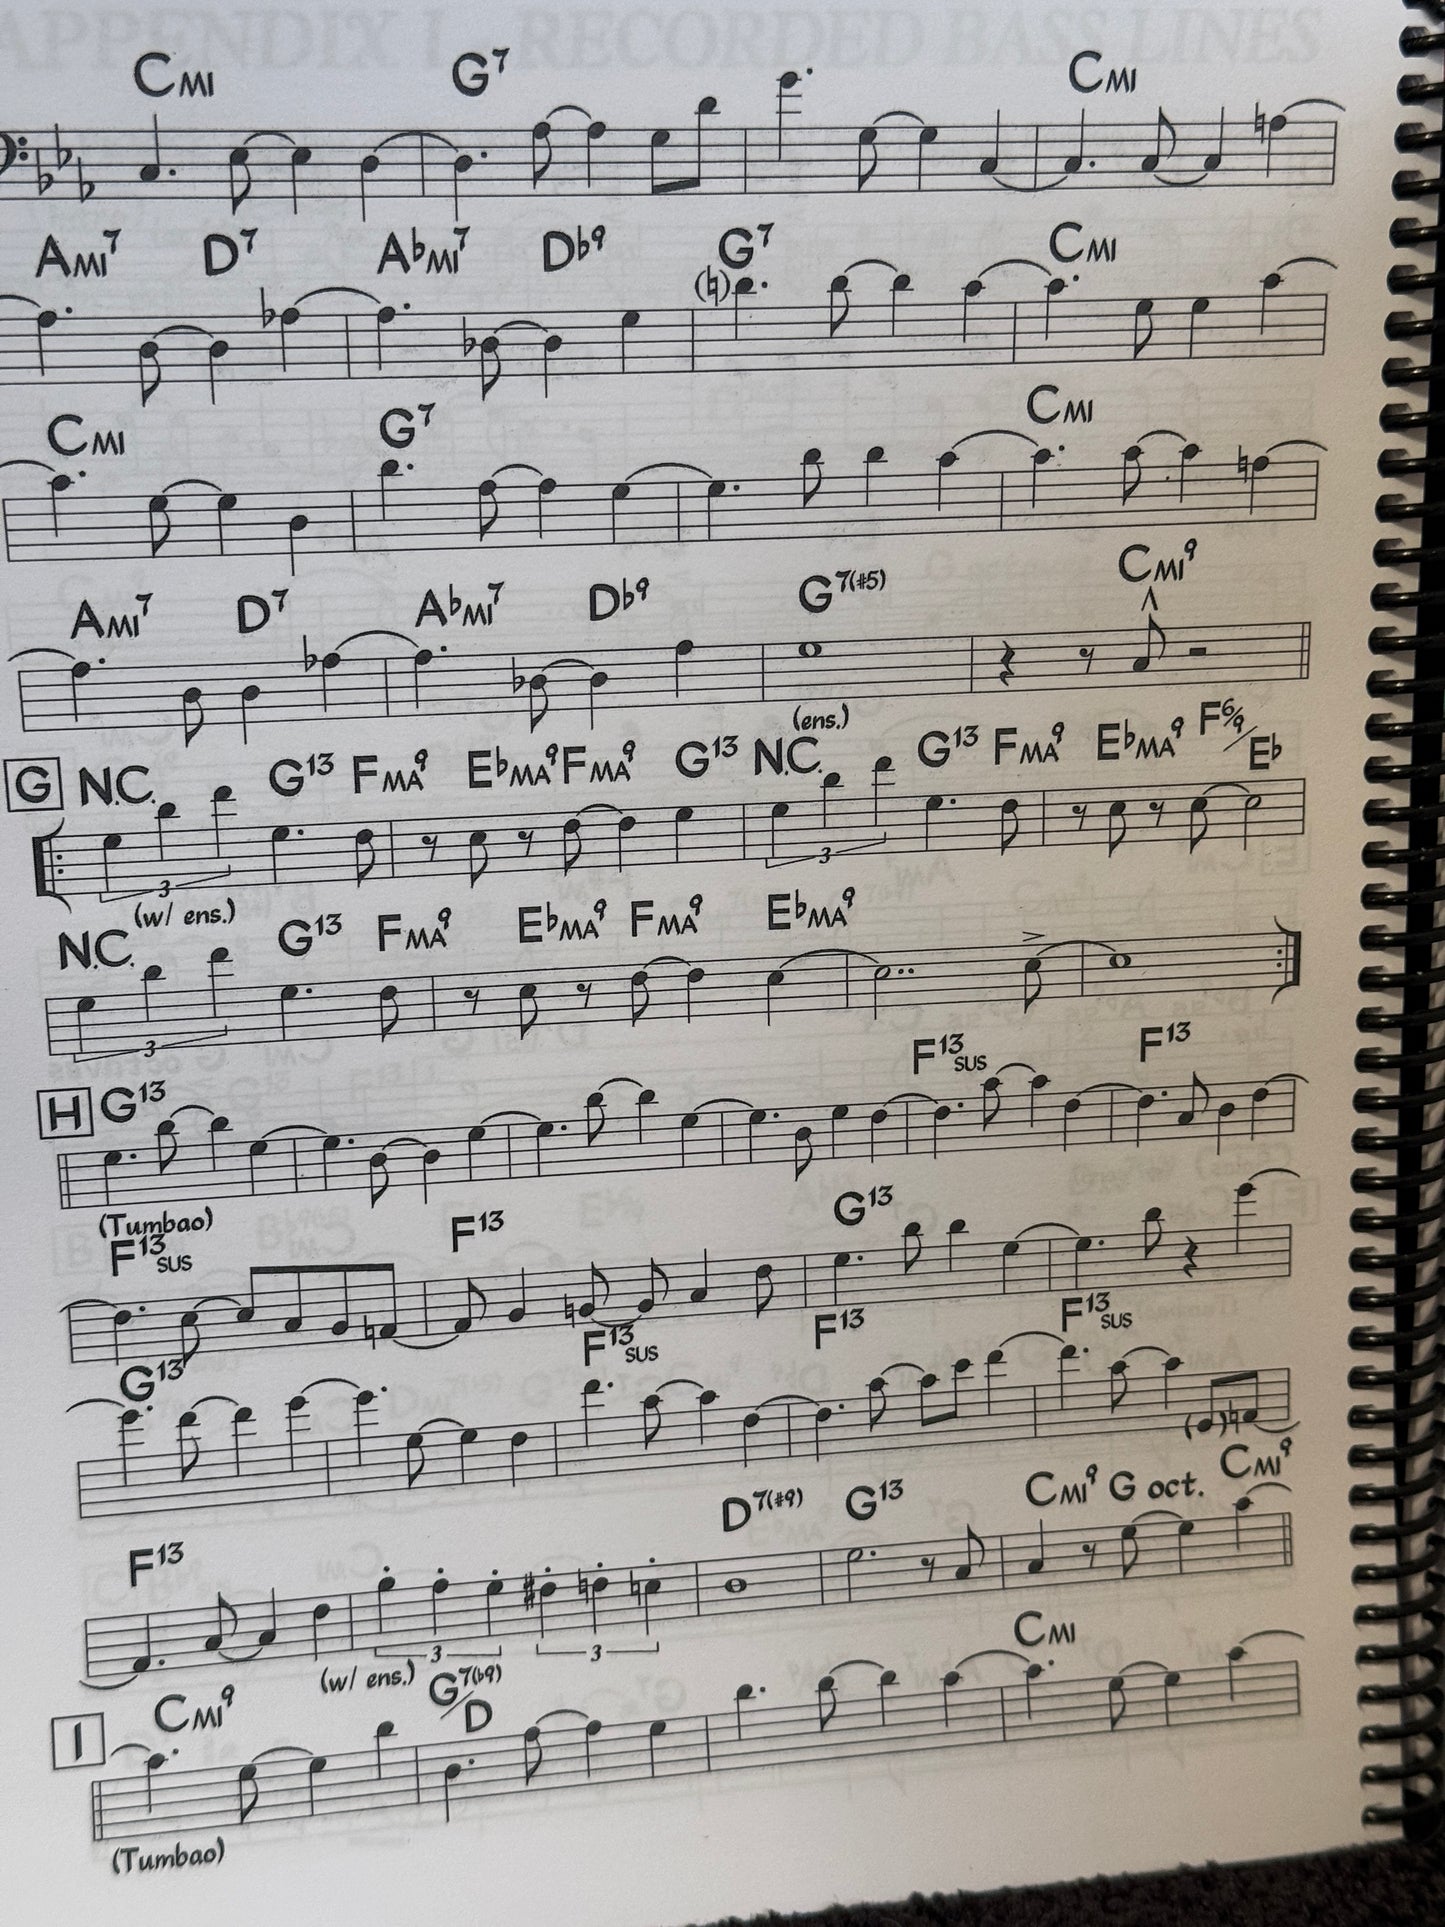 APPENDIX I - RECORDED BASS LINES
CMI G7 CMI
AMI7 D7 A♭MI7 D♭9 G7 CMI
(♮)
CMI G7 CMI
AMI7 D7 A♭MI7 D♭9 G7(#5) CMI9
(ens.)
G N.C. G13 FMA9 E♭MA9 FMA9 G13 N.C. G13 FMA9 E♭MA9 F6/9/E♭
3 3
(w/ ens.)
N.C. G13 FMA9 E♭MA9 FMA9 E♭MA9
3
H G13 F13SUS F13
(Tumbao)
F13SUS F13 G13
G13 F13SUS F13 F13SUS
F13 D7(#9) G13 CMI9 G oct. CMI9
3 3
(w/ ens.)
I CMI9 G7(♭9)/D CMI
(Tumbao)